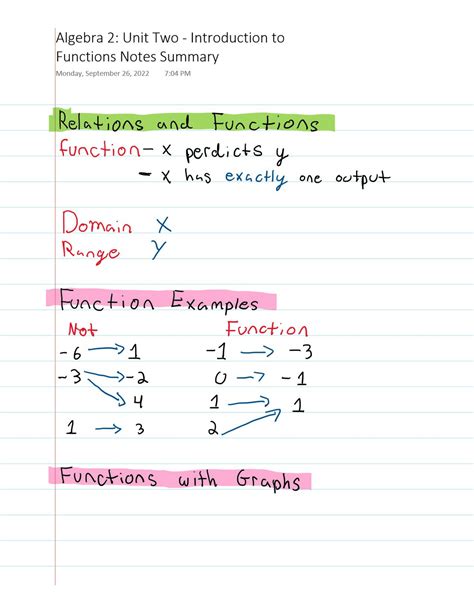 Algebra 2: Unit Two - Introduction to
Functions Notes Summary
Monday, September 26, 2022 7:04 PM
Relations and Functions
function - x perdicts y
- x has exactly one output
Domain x
Range y
Function Examples
Not Function
-6 → 1 -1 → -3
-3 → -2 0 → -1
4 1 → 1
1 → 3 2
Functions with Graphs